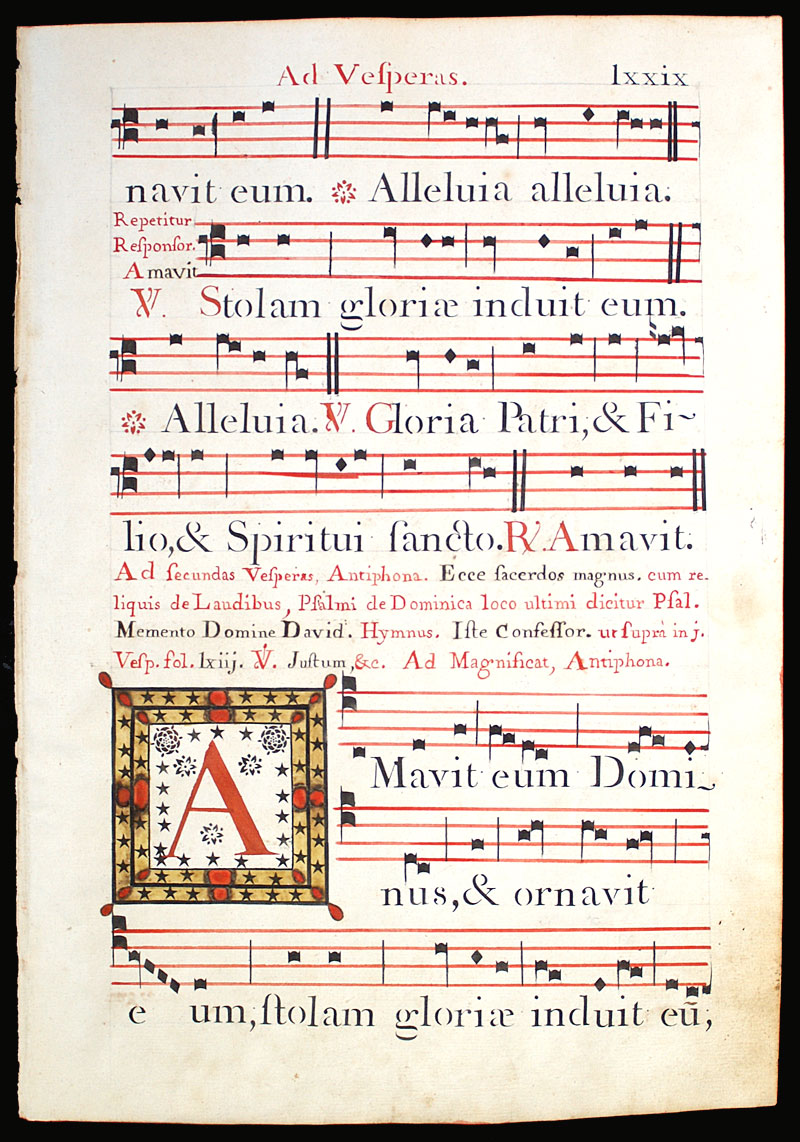 Ad Veſperas. lxxix
navit eum. Alleluia alleluia.
Repetitur
Reſponſor.
Amavit
V. Stolam gloriæ induit eum.
Alleluia. V. Gloria Patri, & Fi~
lio, & Spiritui ſancto. R. Amavit.
Ad ſecundas Veſperas, Antiphona. Ecce ſacerdos magnus. cum re-
liquis de Laudibus, Pſalmi de Dominica loco ultimi dicitur Pſal.
Memento Domine David. Hymnus. Iſte Confeſſor. ut ſuprà in j.
Veſp. fol. lxiij. V. Juſtum, &c. Ad Magnificat, Antiphona.
AMavit eum Domi~
nus, & ornavit
e um, ſtolam gloriæ induit eũ,